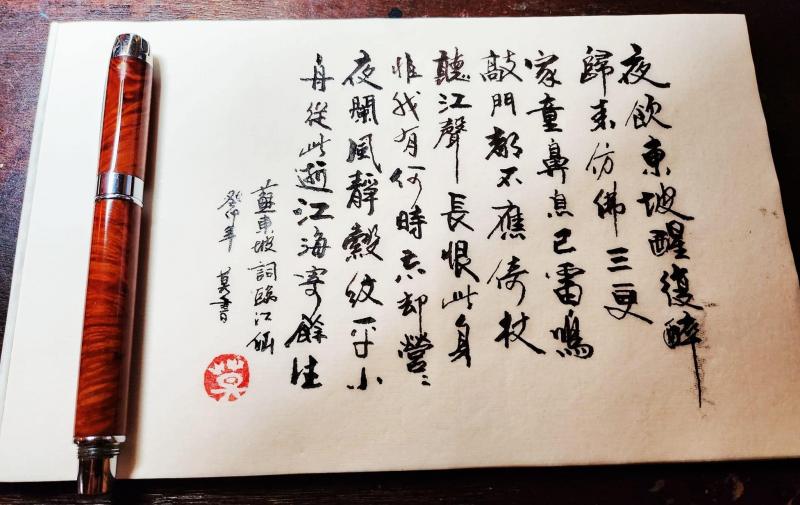 夜飲東坡醒復醉
歸來仿佛三更
家童鼻息已雷鳴
敲門都不應倚杖
聽江聲長恨此身
非我有何時忘却營〻
夜闌風靜縠紋平小
舟從此逝江海寄餘生
蘇東坡詞臨江仙
癸卯年 莫香
莫